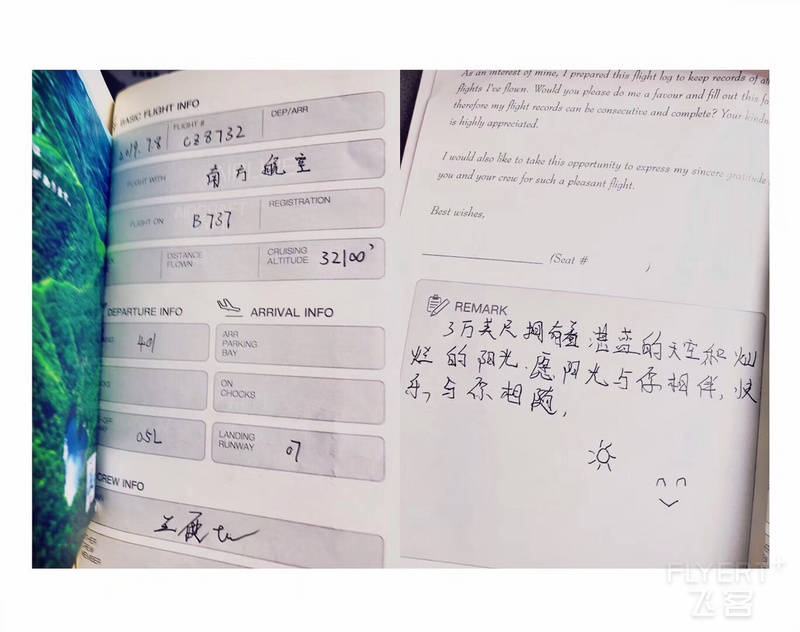 BASIC FLIGHT INFO
2019.7.8
FLIGHT #
CZ8732
DEP/ARR
FLIGHT WITH
南方航空
FLIGHT ON
B737
REGISTRATION
DISTANCE
FLOWN
CRUISING
ALTITUDE
32100'
DEPARTURE INFO
401
05L
ARRIVAL INFO
ARR
PARKING
BAY
ON
CHOCKS
LANDING
RUNWAY
07
CREW INFO
As an interest of mine, I prepared this flight log to keep records of
flights I've flown. Would you please do me a favour and fill out this
therefore my flight records can be consecutive and complete? Your
is highly appreciated.
I would also like to take this opportunity to express my sincere gratitude
you and your crew for such a pleasant flight.
Best wishes,
(Seat # )
REMARK
3万英尺拥有着湛蓝的天空和灿
烂的阳光.愿阳光与你相伴,快
乐,与你相随,
FLYERT+
飞客